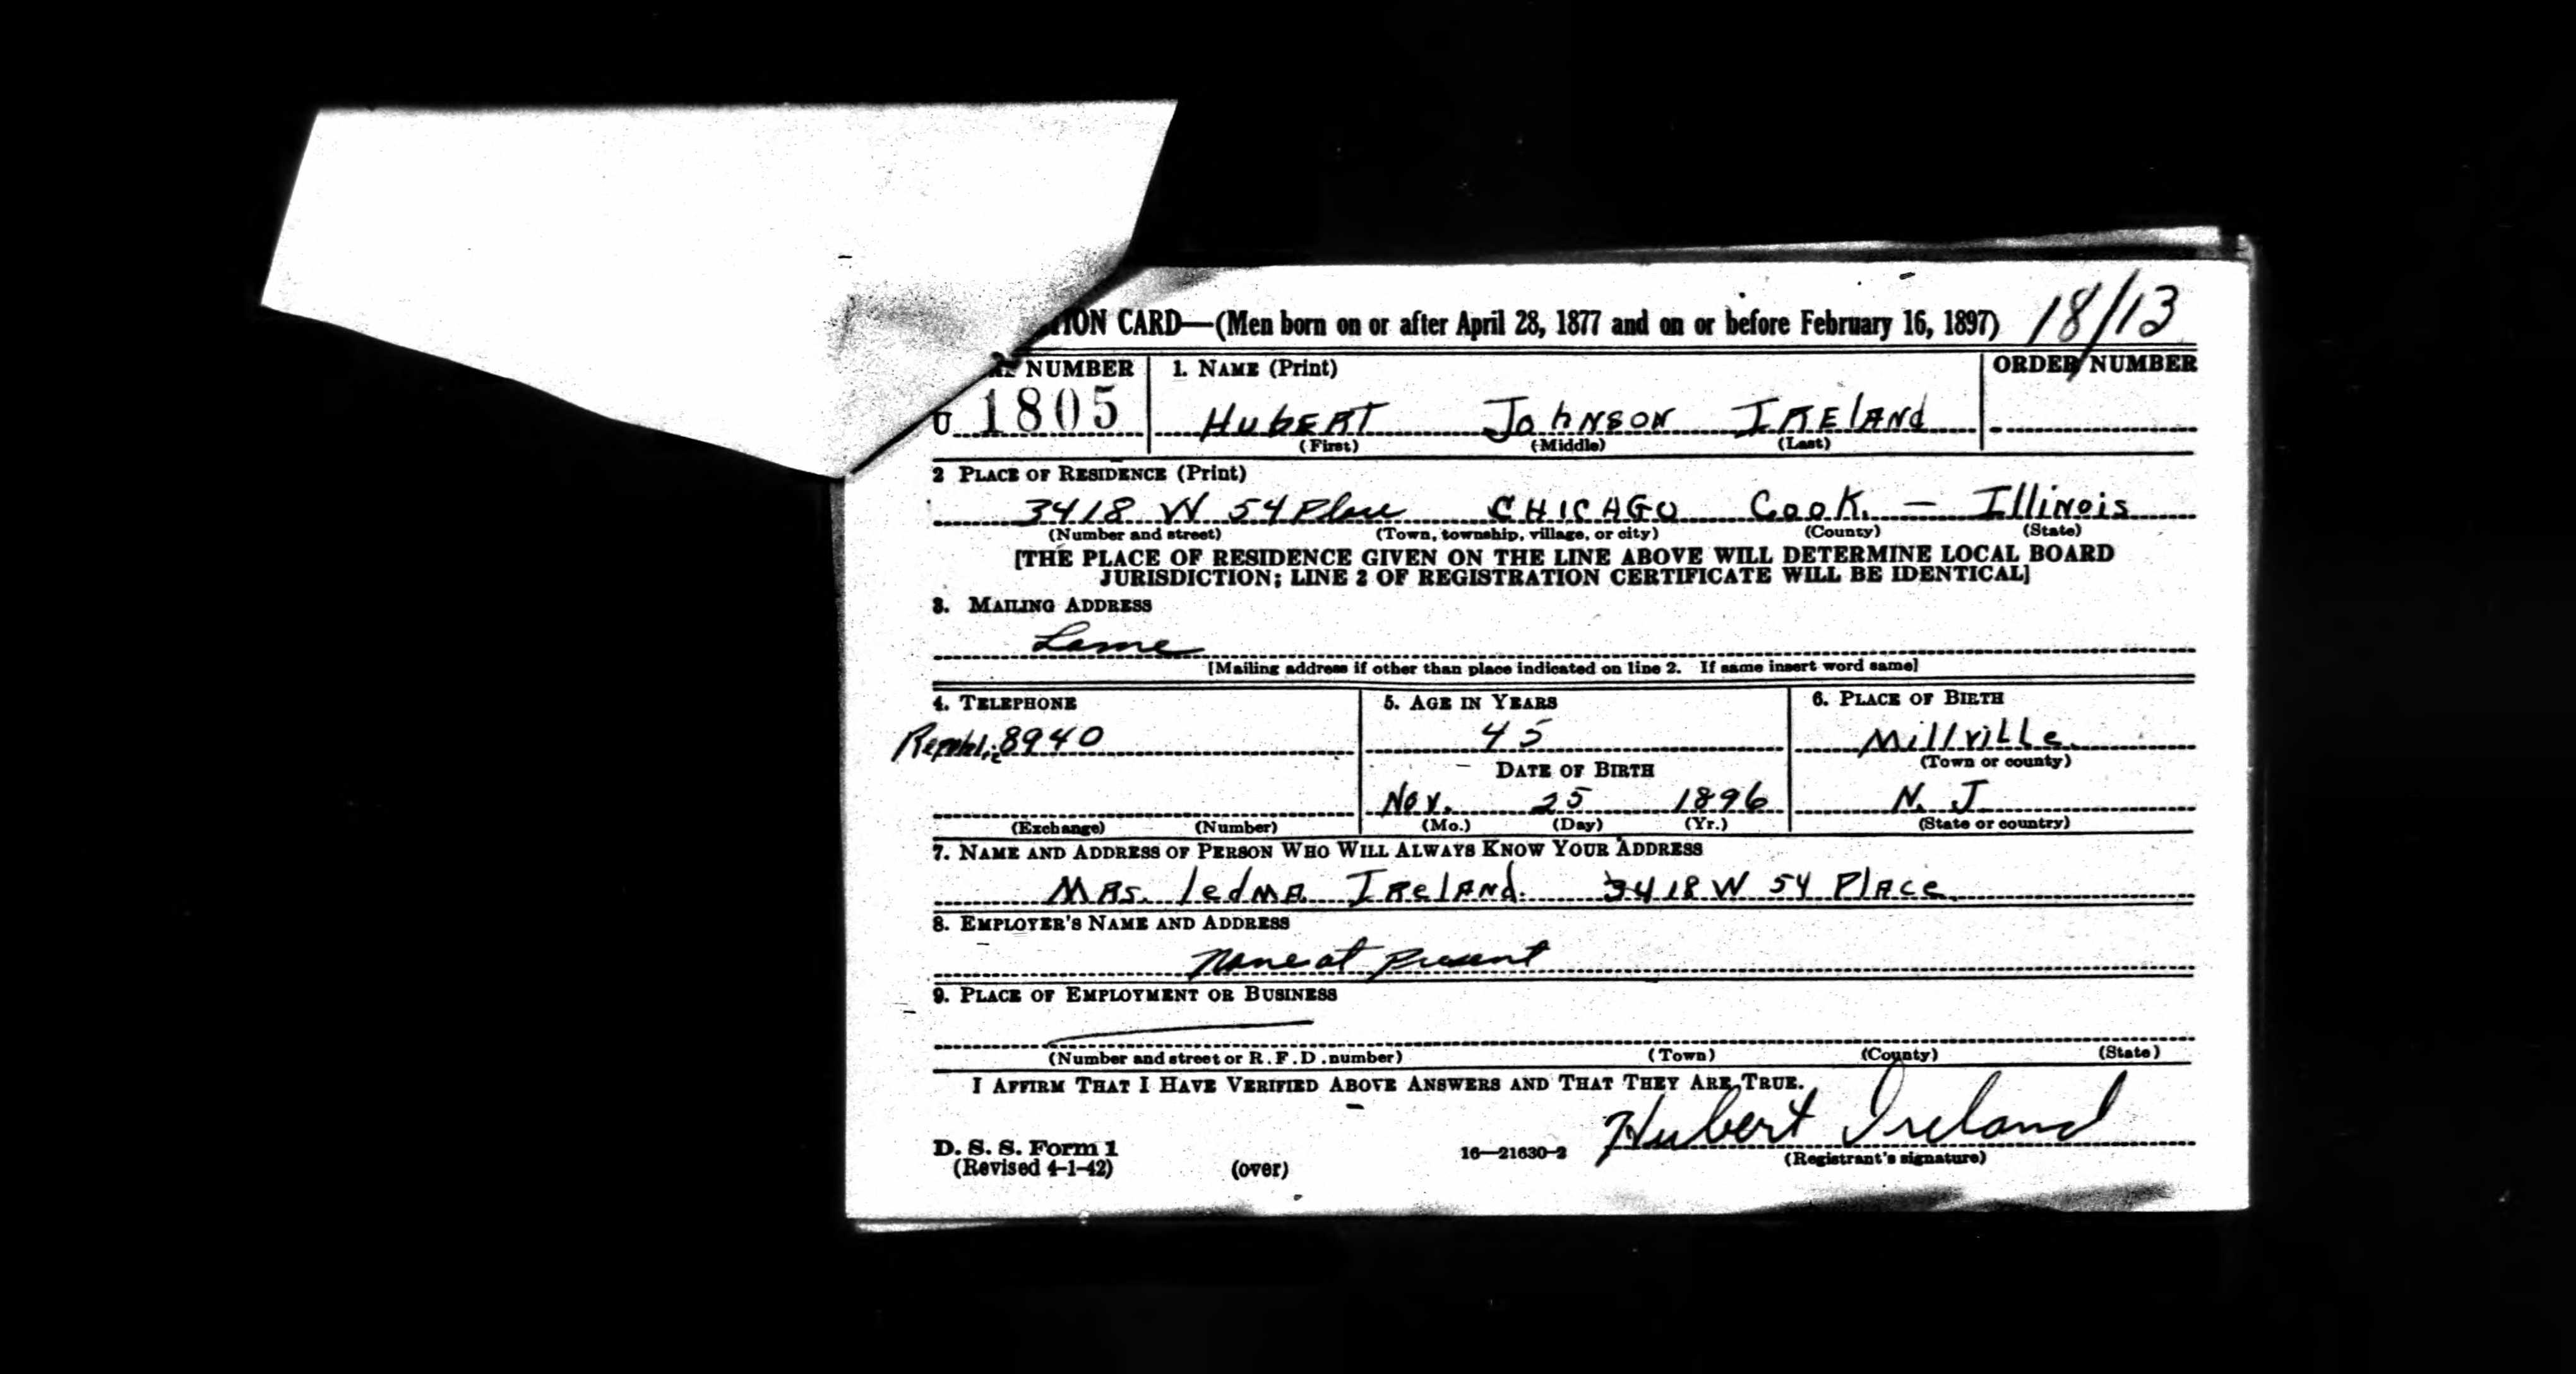 ION CARD—(Men born on or after April 28, 1877 and on or before February 16, 1897) 18/13
NUMBER 1. NAME (Print) ORDER NUMBER
U 1805 HubERT JohNSON IRElANd
(First) (Middle) (Last)
2 PLACE OF RESIDENCE (Print)
3418 W 54 Place CHICAGO Cook. — IllINois
(Number and street) (Town, township, village, or city) (County) (State)
[THE PLACE OF RESIDENCE GIVEN ON THE LINE ABOVE WILL DETERMINE LOCAL BOARD
JURISDICTION; LINE 2 OF REGISTRATION CERTIFICATE WILL BE IDENTICAL]
3. MAILING ADDRESS
Same
[Mailing address if other than place indicated on line 2. If same insert word same]
4. TELEPHONE 5. AGE IN YEARS 6. PLACE OF BIRTH
Republic 8940 45 Millville
(Town or county)
DATE OF BIRTH
Nov. 25 1896 N. J
(Exchange) (Number) (Mo.) (Day) (Yr.) (State or country)
7. NAME AND ADDRESS OF PERSON WHO WILL ALWAYS KNOW YOUR ADDRESS
MRs. ledMA IRelANd. 3418 W 54 PlAce
8. EMPLOYER'S NAME AND ADDRESS
None at Present
9. PLACE OF EMPLOYMENT OR BUSINESS
(Number and street or R.F.D. number) (Town) (County) (State)
I AFFIRM THAT I HAVE VERIFIED ABOVE ANSWERS AND THAT THEY ARE TRUE.
Hubert Ireland
D. S. S. Form 1 16—21630-2 (Registrant's signature)
(Revised 4-1-42) (over)